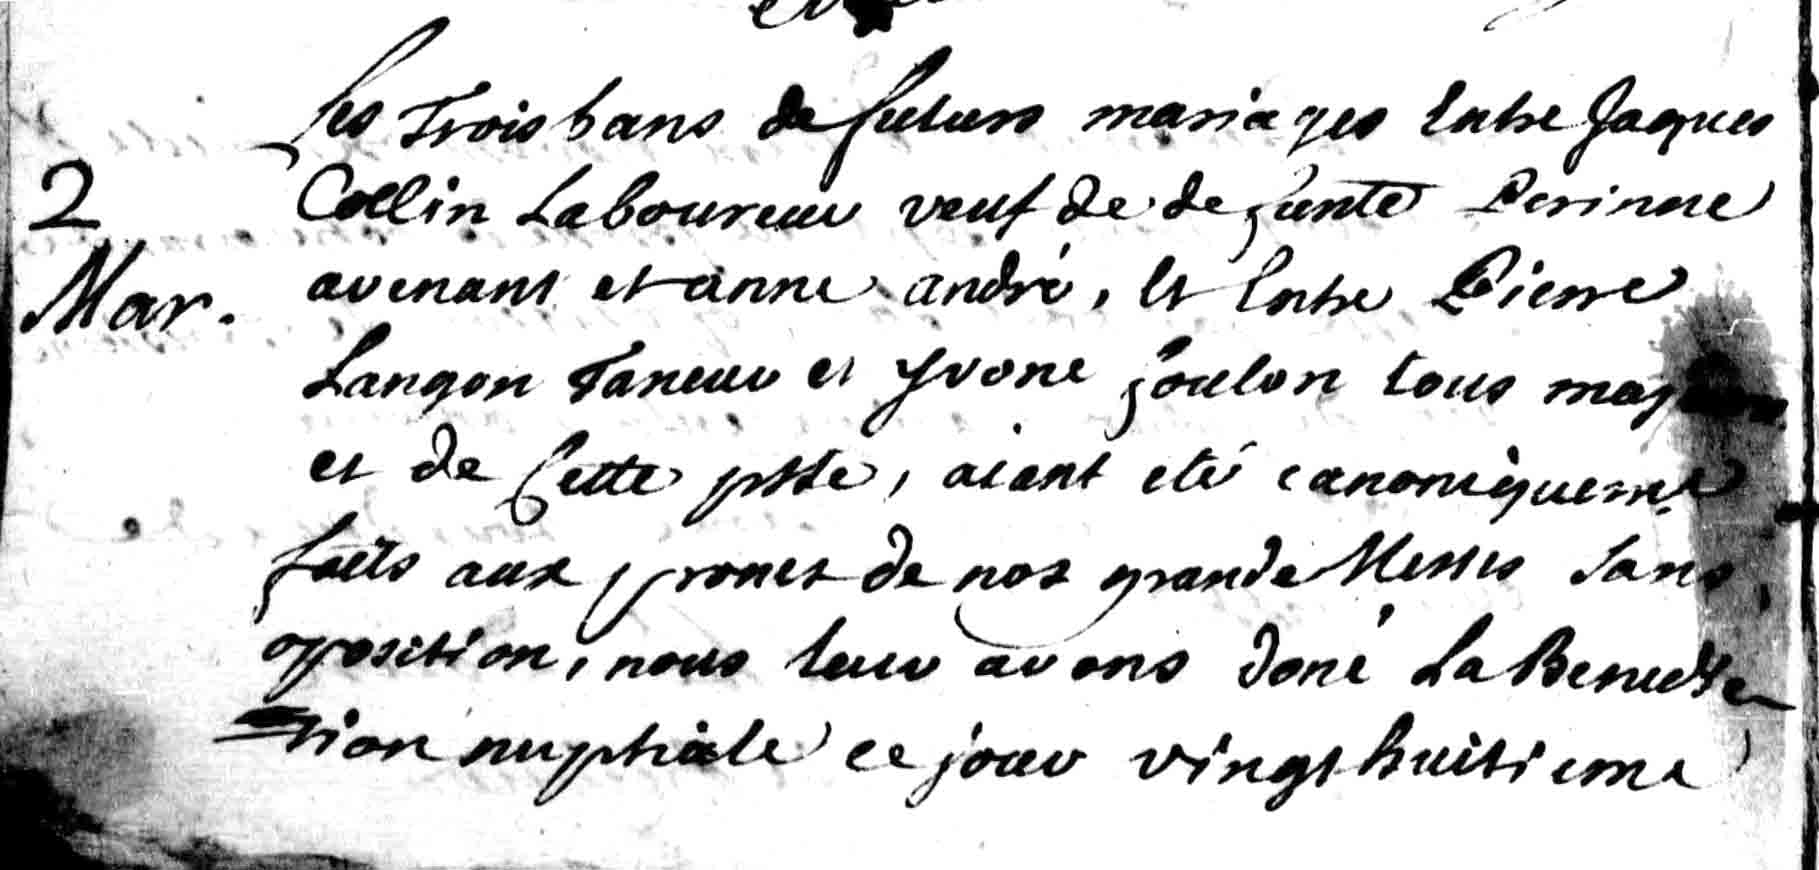 Les Trois bans de futurs mariages Entre Jaques
2 Collin Laboureur veuf de defunte Perinne
Mar. avenant et anne andré, et Entre Pierre
Langon Taneur et Yvone foulon tous
et de Cette psse, aiant eté canoniquemt
faits aux prones de nos grande Messes sans
oposition, nous leur avons doné La Benedic
tion nuptiale ce jour vingt huitieme